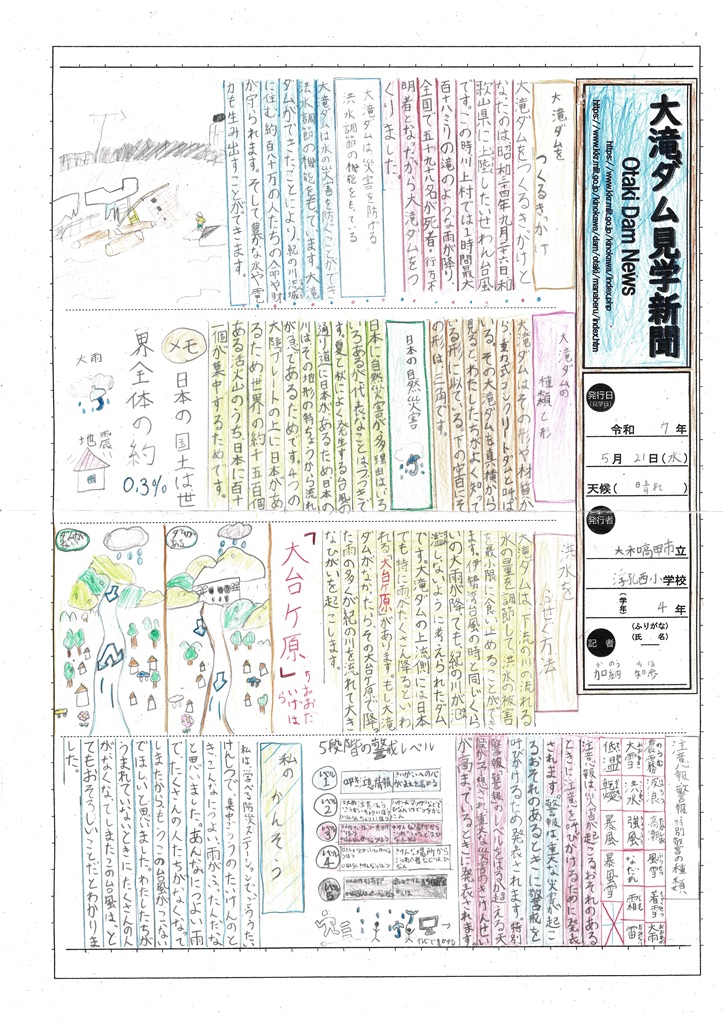 大滝ダム見学新聞
Otaki Dam News
https://www.kkr.mlit.go.jp/kinokawa/index.php
https://www.kkr.mlit.go.jp/kinokawa/dam/otaki/manaberu/index.htm
発行日
(見学日)
令和 7 年
5月 21日(水)
天候( 晴れ )
発行者
大和高田市立
浮孔西小学校
(学年) 4 年
記者
(ふりがな)
(氏名)
大滝ダムを
つくるきっかけ
大滝ダムをつくるきっかけと
なったのは昭和三十四年九月二十六日和
歌山県に上陸したいせわん台風
です。この時川上村では1時間最大
百十八ミリの滝のような雨が降り
全国で五千九十八名が死者・行方不
明者となったから大滝ダムをつ
くりました。
大滝ダムは災害を防げる
洪水調節の機能をもっている
大滝ダムは水の災害を防ぐことができ
洪水調節の機能をもっています。大滝
ダムができたことにより、紀の川流域
に住む約百八十万の人たちの命や財
が守られます。そして豊かな水や電
力も生み出すことができます。
大滝ダムの
種類と形
大滝ダムはその形や材質か
ら、重力式コンクリートダムと呼ば
いる。その大滝ダムを真横から
見るとわたしたちがよく知って
いる形に似ている。下の字百にそ
の形は三角です。
日本の自然災害
日本に自然災害が多い理由はいろ
いろあるが、代表なことはつづきで
す。夏と秋によく発生する台風の
通り道に日本があるため日本の
川はその地形の特ちょうから流れ
が急であるためです。4つの
大陸プレートの上に日本があ
るため世界の約千五百個
ある活火山のうち、日本に百十
一個が集中するためです。
メモ
日本の国土は世
界全体の約
0.3%
大雨
地震
洪水を
ふせぐ方法
大滝ダムは、下流の川の流れる
水の量を調節して洪水の被害
を最小限に食い止めることができ
ます。伊勢湾台風の時と同じくら
いの大雨が降っても紀の川が氾
濫しないように考えられたダム
です。大滝ダムの上流側には日本
でも特に雨がたくさん降るといわ
れる大台ケ原があります。もし大滝
ダムがなかったら、その大台ケ原で降っ
た雨の多くが紀の川を流れて大き
なひがいを起こします。
「大台ケ原」
注意報、警報、特別警報の種類、
濃霧 波浪 高潮 風雪 着雪 大雨
大雪 洪水 強風 なだれ 霜 雷
低温 乾燥 暴風 暴風雪
注意報は、災害が起こるおそれのある
ときに注意を呼びかけるために発表
されます。警報は、重大な災害が起こ
るおそれのあるときに警戒を
呼びかけるため発表されます。特別
警報は警報のレベルをはるか超える天
が高まっているときに発表されます。
5段階の警戒レベル
レベル1
レベル2
レベル3
レベル4
私の
かんそう
私は、「学べる防災ステーション」で、「ごうう」た
いけんで、集中ごううのたいけんのと
き、こんなにつよい雨がふったんだな
と思いました。あんなにつよい雨
でたくさんの人たちがなくなって
しまたからもうこの台風がこない
でほしいと思いました。わたしたちが
うまれていないときにたくさんの人
がなくなてしまたこの台風は、と
てもおそろしいことだとわかりま
した。